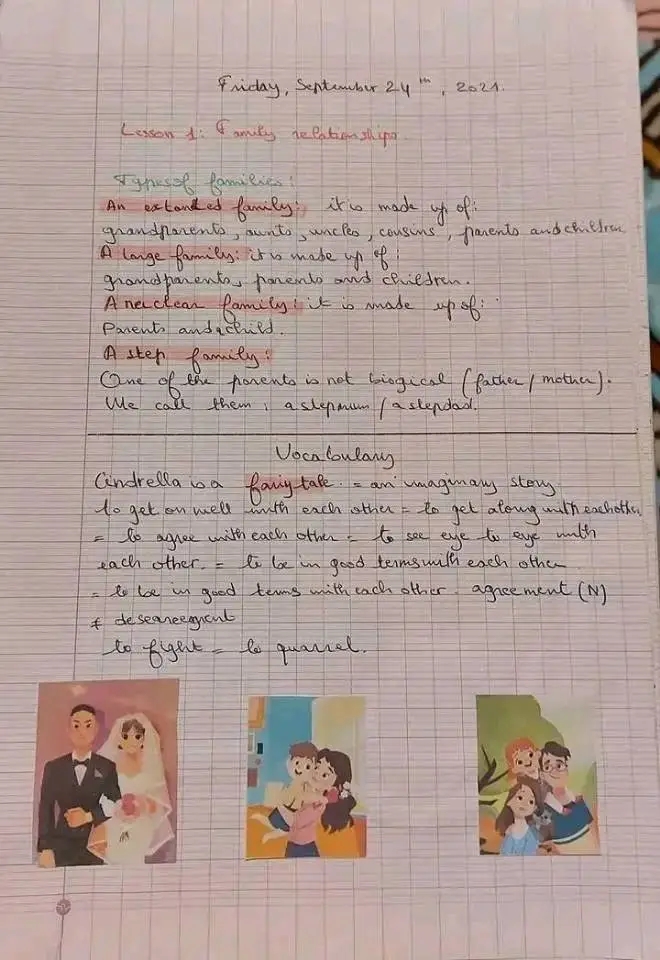 Friday, September 24th, 2021.
Lesson 1: Family relationships.
Types of families:
An extanded family: it is made up of:
grandparents, aunts, uncles, cousins, parents and children
A large family: it is made up of:
grandparents, parents and children.
A neclear family: it is made up of:
Parents and child.
A step family:
One of the parents is not biogical (father / mother).
We call them: a stepmum / a stepdad.
Vocabulary
Cindrella is a fairy tale. = an imaginary story
to get on well with each other = to get along with each other
= to agree with each other = to see eye to eye with
each other. = to be in good terms with each other
= to be in good terms with each other. agreement (N)
≠ deseareement
to fight = to quarrel.